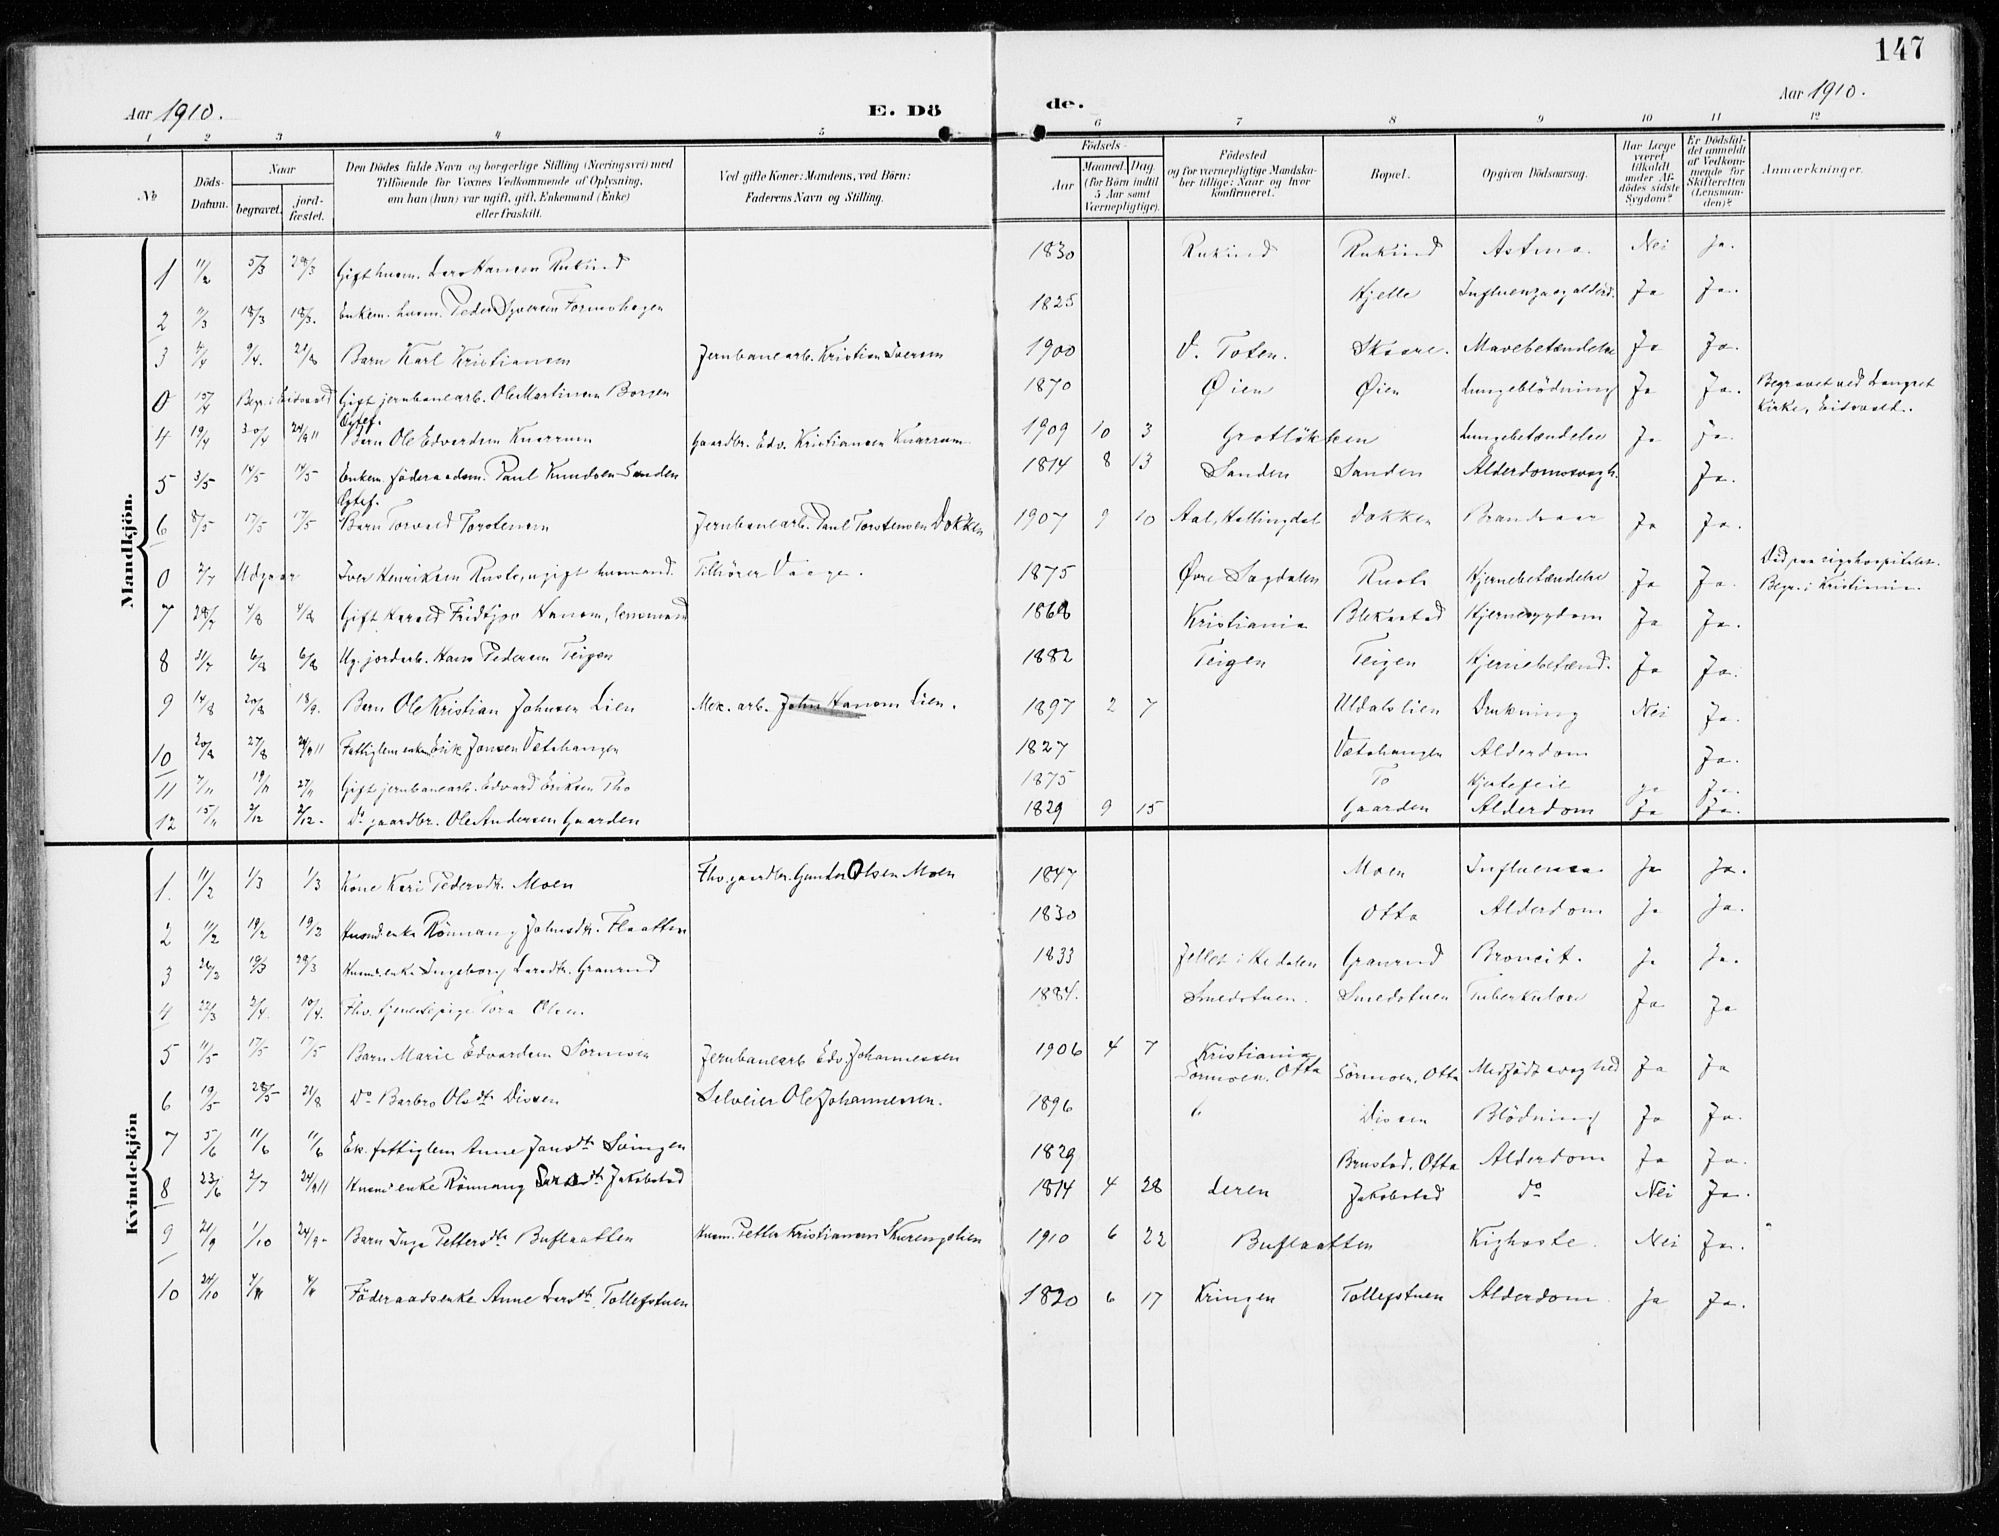 147
Aar 1910.
E. Dö
de.
Aar 1910.
1 2 3 4 5 6 7 8 9 10 11 12
No
Döds-Datum.
Naar
begravet.
jord-fæstet.
Den Dödes fulde Navn og borgerlige Stilling (Næringsvei) med
Tilföiende for Voxnes Vedkommende af Oplysning,
om han (hun) var ugift, gift, Enkemand (Enke)
eller fraskilt.
Ved gifte Koner: Mandens, ved Börn:
Faderens Navn og Stilling.
Födsels-
Aar
Maaned. Dag.
(for Börn indtil
5 Aar samt
Værnepligtige).
Födested
og for værnepligtige Mandska-
ber tillige: Naar og hvor
konfirmeret.
Bopæl.
Opgiven Dödsaarsag.
Har Læge
været
tilkaldt
under Af-
dödes sidste
Sygdom?
Er Dödsfal-
det anmeldt
af Vedkom-
mende for
Skifteretten
(Lensman-
den)?
Anmærkninger.
Mandkjön.
1 11/2 5/3 28/3 Gift husm. Lars Hansen Rukind 1830 Rukind Rukind Astma. Nei Ja.
2 7/3 18/3 18/3. Enkem. husm. Peder Syversen Formohagen 1825 Hjelle Influenza og alderd. Ja Ja.
3 4/4 9/4. 21/8 Barn Karl Kristiansen Jernbanearb. Kristian Iversen 1900 V. Toten. Skaare. Mavebetændelse Ja Ja.
0 15/4 Begr. i Eidsvold Gift jernbanearb. Ole Martinsen Borgen 1870 Øien Øien Lungeblödning Ja Ja. Begravet ved Langset
Kirke, Eidsvold..
4 19/4 30/4 24/9 11 Ogtef. Barn Ole Edvardsen Knarrum Gaardbr. Edv. Kristiansen Knarrum 1909 10 3 Grotlökken Lungebetændelse Ja Ja.
5 3/5 14/5 14/5 Enkem. föderaadsm. Paul Knudsen Sanden 1814 8 13 Sanden Sanden Alderdomssvagh. Ja.
6 8/5 17/5 17/5 Ogtef. Barn Torvald Torstensen Jernbanearb. Paul Torstensen Dokken 1907 9 10 Aal, Hallingdal Dokken Brandsaar Ja Ja.
0 2/7 Udgaar Iver Henriksen Ruste, ugift husmand. Tilhörer Vaage. 1875 Øvre Sagdalen Ruste Hjernebetændelse Ja Ja. Död paa rigshospitalet.
Begr. i Kristiania.
7 28/7 4/8 4/8 Gift Harald Fridtjov Hansen, lensmand 1868 Kristiania Blekastad Hjernesygdom Ja Ja.
8 31/7 6/8 6/8 Ug. jordarb. Hans Pedersen Teigen 1882 Teigen Teigen Hjernebetænd. Ja Ja.
9 14/8 20/8 18/9. Barn Ole Kristian Johnsen Lien Mek. arb. John Hansen Lien. 1897 2 7 Uldalslien Drukning Nei Ja.
10 20/8 27/8 24/9 11 Fattiglem enkem. Erik Jonsen Vetehaugen 1827 Vætehaugen Alderdom Ja.
11 7/11 19/11 27/11 Gift jernbanearb. Edvard Eriksen Tho 1875 To Hjertefeil ja Ja.
12 15/11 2/12 2/12. Do gaardbr. Ole Andersen Gaarden 1829 9 15 Gaarden Alderdom Ja Ja.
Kvindekjön
1. 11/2 1/3 1/3 Kone Kari Pedersdt. Moen Fhv. gaardbr. Gunder Olsen Moen 1847 Moen Influensa Ja Ja.
2 11/2 19/2 19/2 Husmd.enke Rönnaug Johnsdt. Flaatten 1830 Otta Alderdom Ja Ja.
3 26/2 19/3 29/3 Husmd.enke Ingeborg Larsdtr. Granrud 1833 Fellet i Hedalen Granrud Broncit. Ja Ja.
4 22/3 2/4. 10/4. Fhv. tjenestepige Tora Olsen. 1884. Smedstuen. Smedstuen Tuberkulose Ja Ja
5 11/5 17/5 17/5 Barn Marie Edvardsen Sörmoen Jernbanearb Edv. Johannessen 1906 4 7 Kristiania
Sörmoen, Otta Sörmoen, Otta Medfödt svaghed Ja Ja
6 19/5 28/5 21/8 Do Barbro Olsdt Dissen Selveier Ole Johannessen. 1896 " Dissen Blödning Ja Ja.
7 5/6 11/6 11/6 Ek. fattiglem Anne Jansdt Svingen 1829 Brustad, Otta Alderdom Ja Ja.
8 23/6 2/7 24/9 11 Husmd.enke Rönnaug Larsdt Jakobstad 1814 4 28 Leren Jakobstad do Nei Ja.
9 21/9 1/10 24/9- Barn Inga Pettersdt Buflaatten Husm. Petter Kristiansen Skurengslien 1910 6 22 Buflaatten Kighoste. Nei Ja.
10 24/10 4/11 4/11 Föderaadsenke Anne Larsdt. Tollefstuen 1820 6 17 Kringen Tollefstuen Alderdom. Ja Ja.